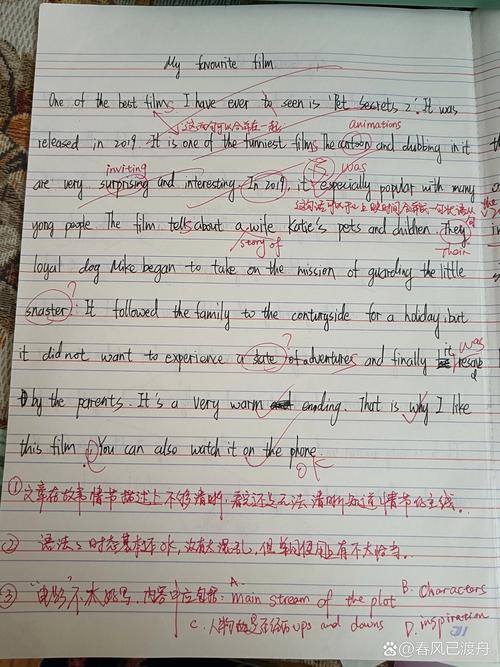 My favourite film
One of the best films I have ever to seen is 'Pet Secrets 2'. It was
这两句可以合并在一起
animations
released in 2019. It is one of the funniest films. The cartoon and dubbing in it
inviting
was
are very surprising and interesting. In 2019, it especially popular with many
yong people. The film tells about a wife Kate's pets and children. They
story of
Their
loyal dog Mike began to take on the mission of guarding the little
?
snaster. It followed the family to the conturyside for a holiday, but
?
it was
it did not want to experience a state of adventures and finally resand
by the parents. It's a very warm ending. That is why I like
this film. You can also watch it on the phone.
OK
① 文章在故事情节描述上不够清晰,看完还是无法清晰知道情节的主线。
② 语法:时态基本OK,没有太混乱,但单词使用上有不太恰当。
③ "电影"不太好写,内容中应包括: A. main stream of the plot B. characters
C. ups and downs D. inspiration
31
@春风已渡舟